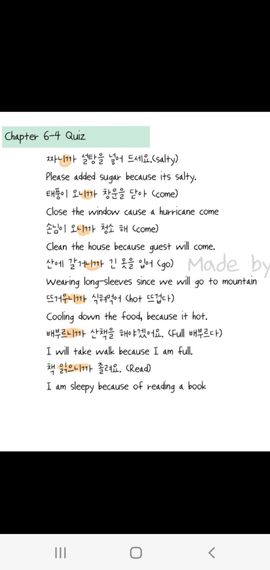 Chapter 6-4 Quiz
짜니까 설탕을 넣어 드세요.(salty)
Please added sugar because its salty.
태풍이 오니까 창문을 닫아 (come)
Close the window cause a hurricane come
손님이 오니까 청소 해 (come)
Clean the house because guest will come.
산에 갈거니까 긴 옷을 입어 (go)
Made by
Wearing long-sleeves since we will go to mountain
뜨거우니까 식혀먹어 (hot 뜨겁다)
Cooling down the food, because it hot.
배부르니까 산책을 해야겠어요. (Full 배부르다)
I will take walk because I am full.
책 읽으니까 졸려요. (Read)
I am sleepy because of reading a book